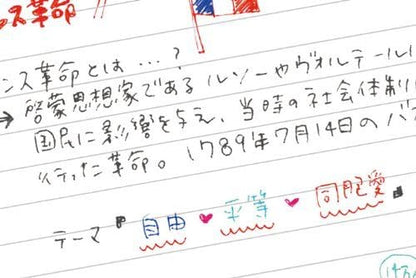 ンス革命
ンス革命とは…?
→啓蒙思想家であるルソーやヴォルテール
国民に影響を与え、当時の社会体制
行った革命。1789年7月14日のバ
テーマ 自由♥平等♥同胞愛